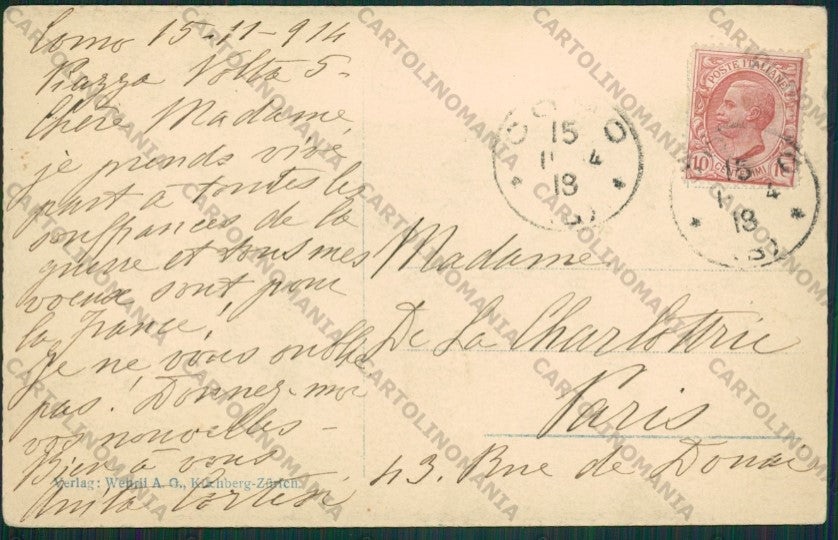 Como 15-11-914
Piazza Volta 5-
Chère Madame,
je prends vive
part à toutes les
souffrances de la
guerre et tous mes
voeux sont pour
la France!
Je ne vous oublie
pas! Donnez-moi
vos nouvelles-
Bien à vous
Anita
Verlag: Wehrli A. G., Kilchberg-Zürich.
COMO
15
4
18
POSTE ITALIANE
10
15
4
18
Madame
De La Charlottrie
Paris
43. Rue de Douai
CARTOLINOMANIA